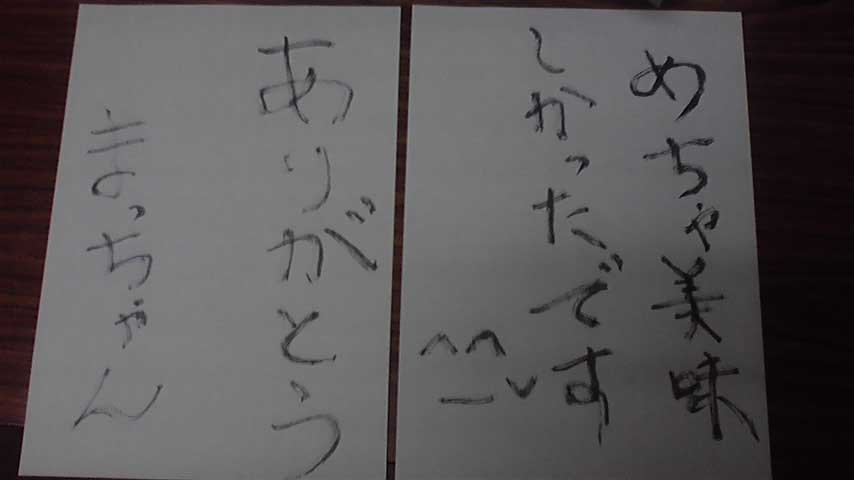 めちゃ美味
しかったです
^^
ー、
ありがとう
まっちゃん